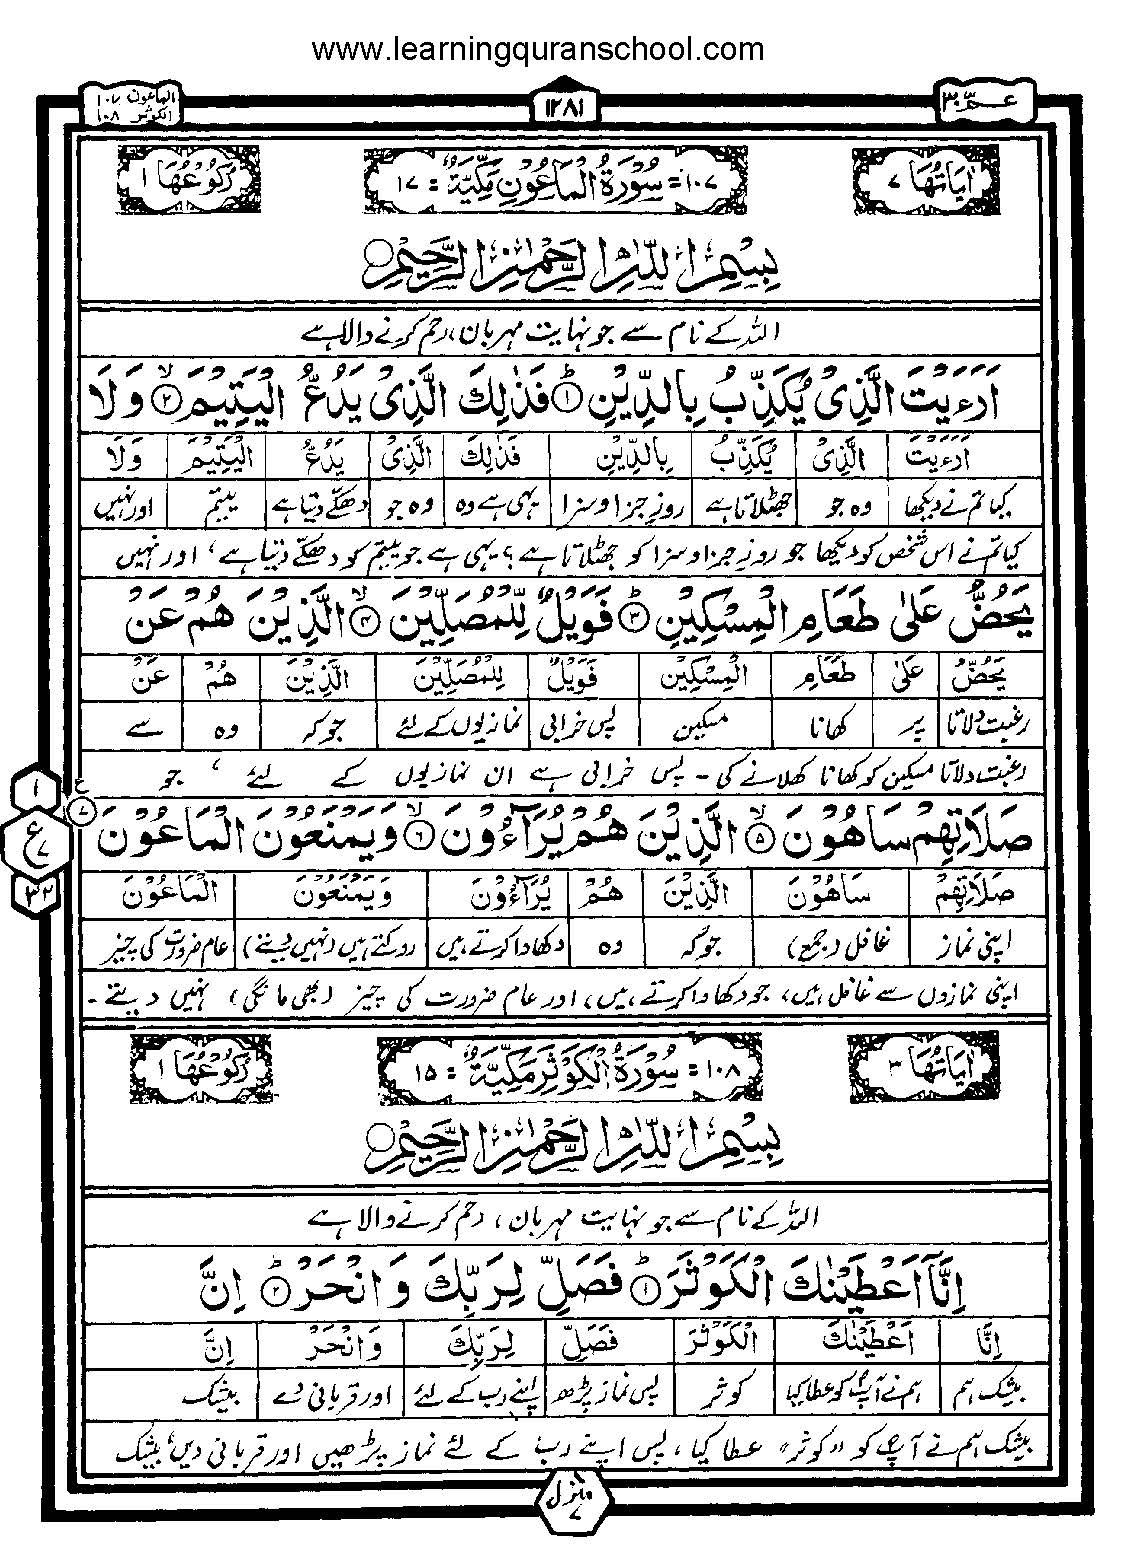 www.learningquranschool.com
عـــمّ ٣٠
١٢٨١
الماعون ١٠٧
الكوثر ١٠٨
اٰيَاتُهَا ٧
١٠٧= سُوْرَةُ الْمَاعُوْنِ مَكِّيَّةٌ = ١٧
رُكُوْعُهَا ١
بِسْمِ اللّٰهِ الرَّحْمٰنِ الرَّحِيْمِ
اللہ کے نام سے جو نہایت مہربان، رحم کرنے والا ہے
اَرَءَيْتَ الَّذِىْ يُكَذِّبُ بِالدِّيْنِ ؕ﴿١﴾ فَذٰلِكَ الَّذِىْ يَدُعُّ الْيَتِيْمَ ۙ﴿٢﴾ وَلَا
اَرَءَيْتَ الَّذِىْ يُكَذِّبُ بِالدِّيْنِ فَذٰلِكَ الَّذِىْ يَدُعُّ الْيَتِيْمَ وَلَا
کیا تم نے دیکھا وہ جو جھٹلاتا ہے روزِ جزا و سزا یہی ہے وہ وہ جو دھکے دیتا ہے یتیم اور نہیں
کیا تم نے اس شخص کو دیکھا جو روزِ جزا و سزا کو جھٹلاتا ہے؟ یہی ہے جو یتیم کو دھکے دیتا ہے، اور نہیں
يَحُضُّ عَلٰى طَعَامِ الْمِسْكِيْنِ ؕ﴿٣﴾ فَوَيْلٌ لِّلْمُصَلِّيْنَ ۙ﴿٤﴾ الَّذِيْنَ هُمْ عَنْ
يَحُضُّ عَلٰى طَعَامِ الْمِسْكِيْنِ فَوَيْلٌ لِّلْمُصَلِّيْنَ الَّذِيْنَ هُمْ عَنْ
رغبت دلاتا پر کھانا مسکین پس خرابی نمازیوں کے لئے جو کہ وہ سے
رغبت دلاتا مسکین کو کھانا کھلانے کی - پس خرابی ہے ان نمازیوں کے لئے، جو
صَلَاتِهِمْ سَاهُوْنَ ۙ﴿٥﴾ الَّذِيْنَ هُمْ يُرَآءُوْنَ ۙ﴿٦﴾ وَيَمْنَعُوْنَ الْمَاعُوْنَ ﴿٧﴾ ع
١
ع ٧
٣٢
صَلَاتِهِمْ سَاهُوْنَ الَّذِيْنَ هُمْ يُرَآءُوْنَ وَيَمْنَعُوْنَ الْمَاعُوْنَ
اپنی نماز غافل (جمع) جو کہ وہ دکھاوا کرتے ہیں روکتے ہیں (نہیں دیتے) عام ضرورت کی چیز
اپنی نمازوں سے غافل ہیں، جو دکھاوا کرتے ہیں، اور عام ضرورت کی چیز (بھی مانگی) نہیں دیتے -
اٰيَاتُهَا ٣
١٠٨= سُوْرَةُ الْكَوْثَرِ مَكِّيَّةٌ = ١٥
رُكُوْعُهَا ١
بِسْمِ اللّٰهِ الرَّحْمٰنِ الرَّحِيْمِ
اللہ کے نام سے جو نہایت مہربان، رحم کرنے والا ہے
اِنَّآ اَعْطَيْنٰكَ الْكَوْثَرَ ؕ﴿١﴾ فَصَلِّ لِرَبِّكَ وَانْحَرْ ؕ﴿٢﴾ اِنَّ
اِنَّا اَعْطَيْنٰكَ الْكَوْثَرَ فَصَلِّ لِرَبِّكَ وَانْحَرْ اِنَّ
بیشک ہم ہم نے آپ کو عطا کیا کوثر پس نماز پڑھ اپنے رب کے لئے اور قربانی دے بیشک
بیشک ہم نے آپ کو "کوثر" عطا کیا، پس اپنے رب کے لئے نماز پڑھیں اور قربانی دیں، بیشک
منزل ٧